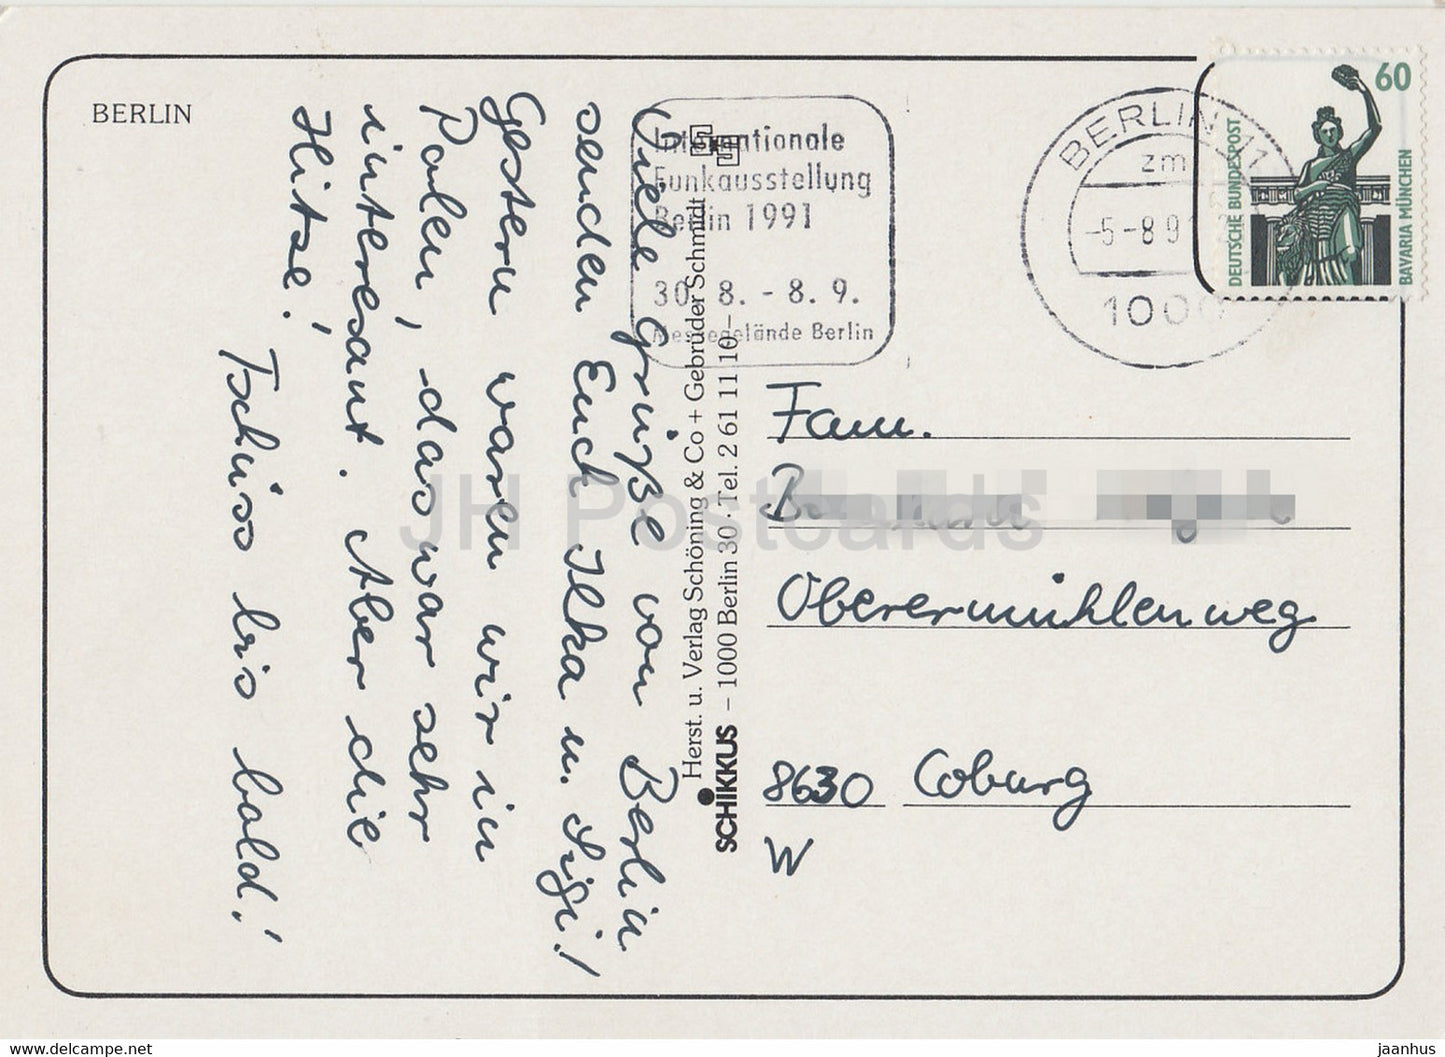 BERLIN
Viele Grüße von Berlin
senden Euch Ilka u. Sigi!
Gestern waren wir in
Polen, das war sehr
interesant. Aber die
Hitze!
Tschüss bis bald!
Internationale
Funkausstellung
Berlin 1991
30. 8. - 8. 9.
Messegelände Berlin
BERLIN 11
zm
-5-8 9
1000
60
DEUTSCHE BUNDESPOST
BAVARIA MÜNCHEN
Herst. u. Verlag Schöning & Co + Gebrüder Schmidt
SCHIKKUS – 1000 Berlin 30 · Tel. 2 61 11 10 –
Fam.
Oberermühlenweg
8630 Coburg
W
JH Postcards
www.delcampe.net
jaanhus